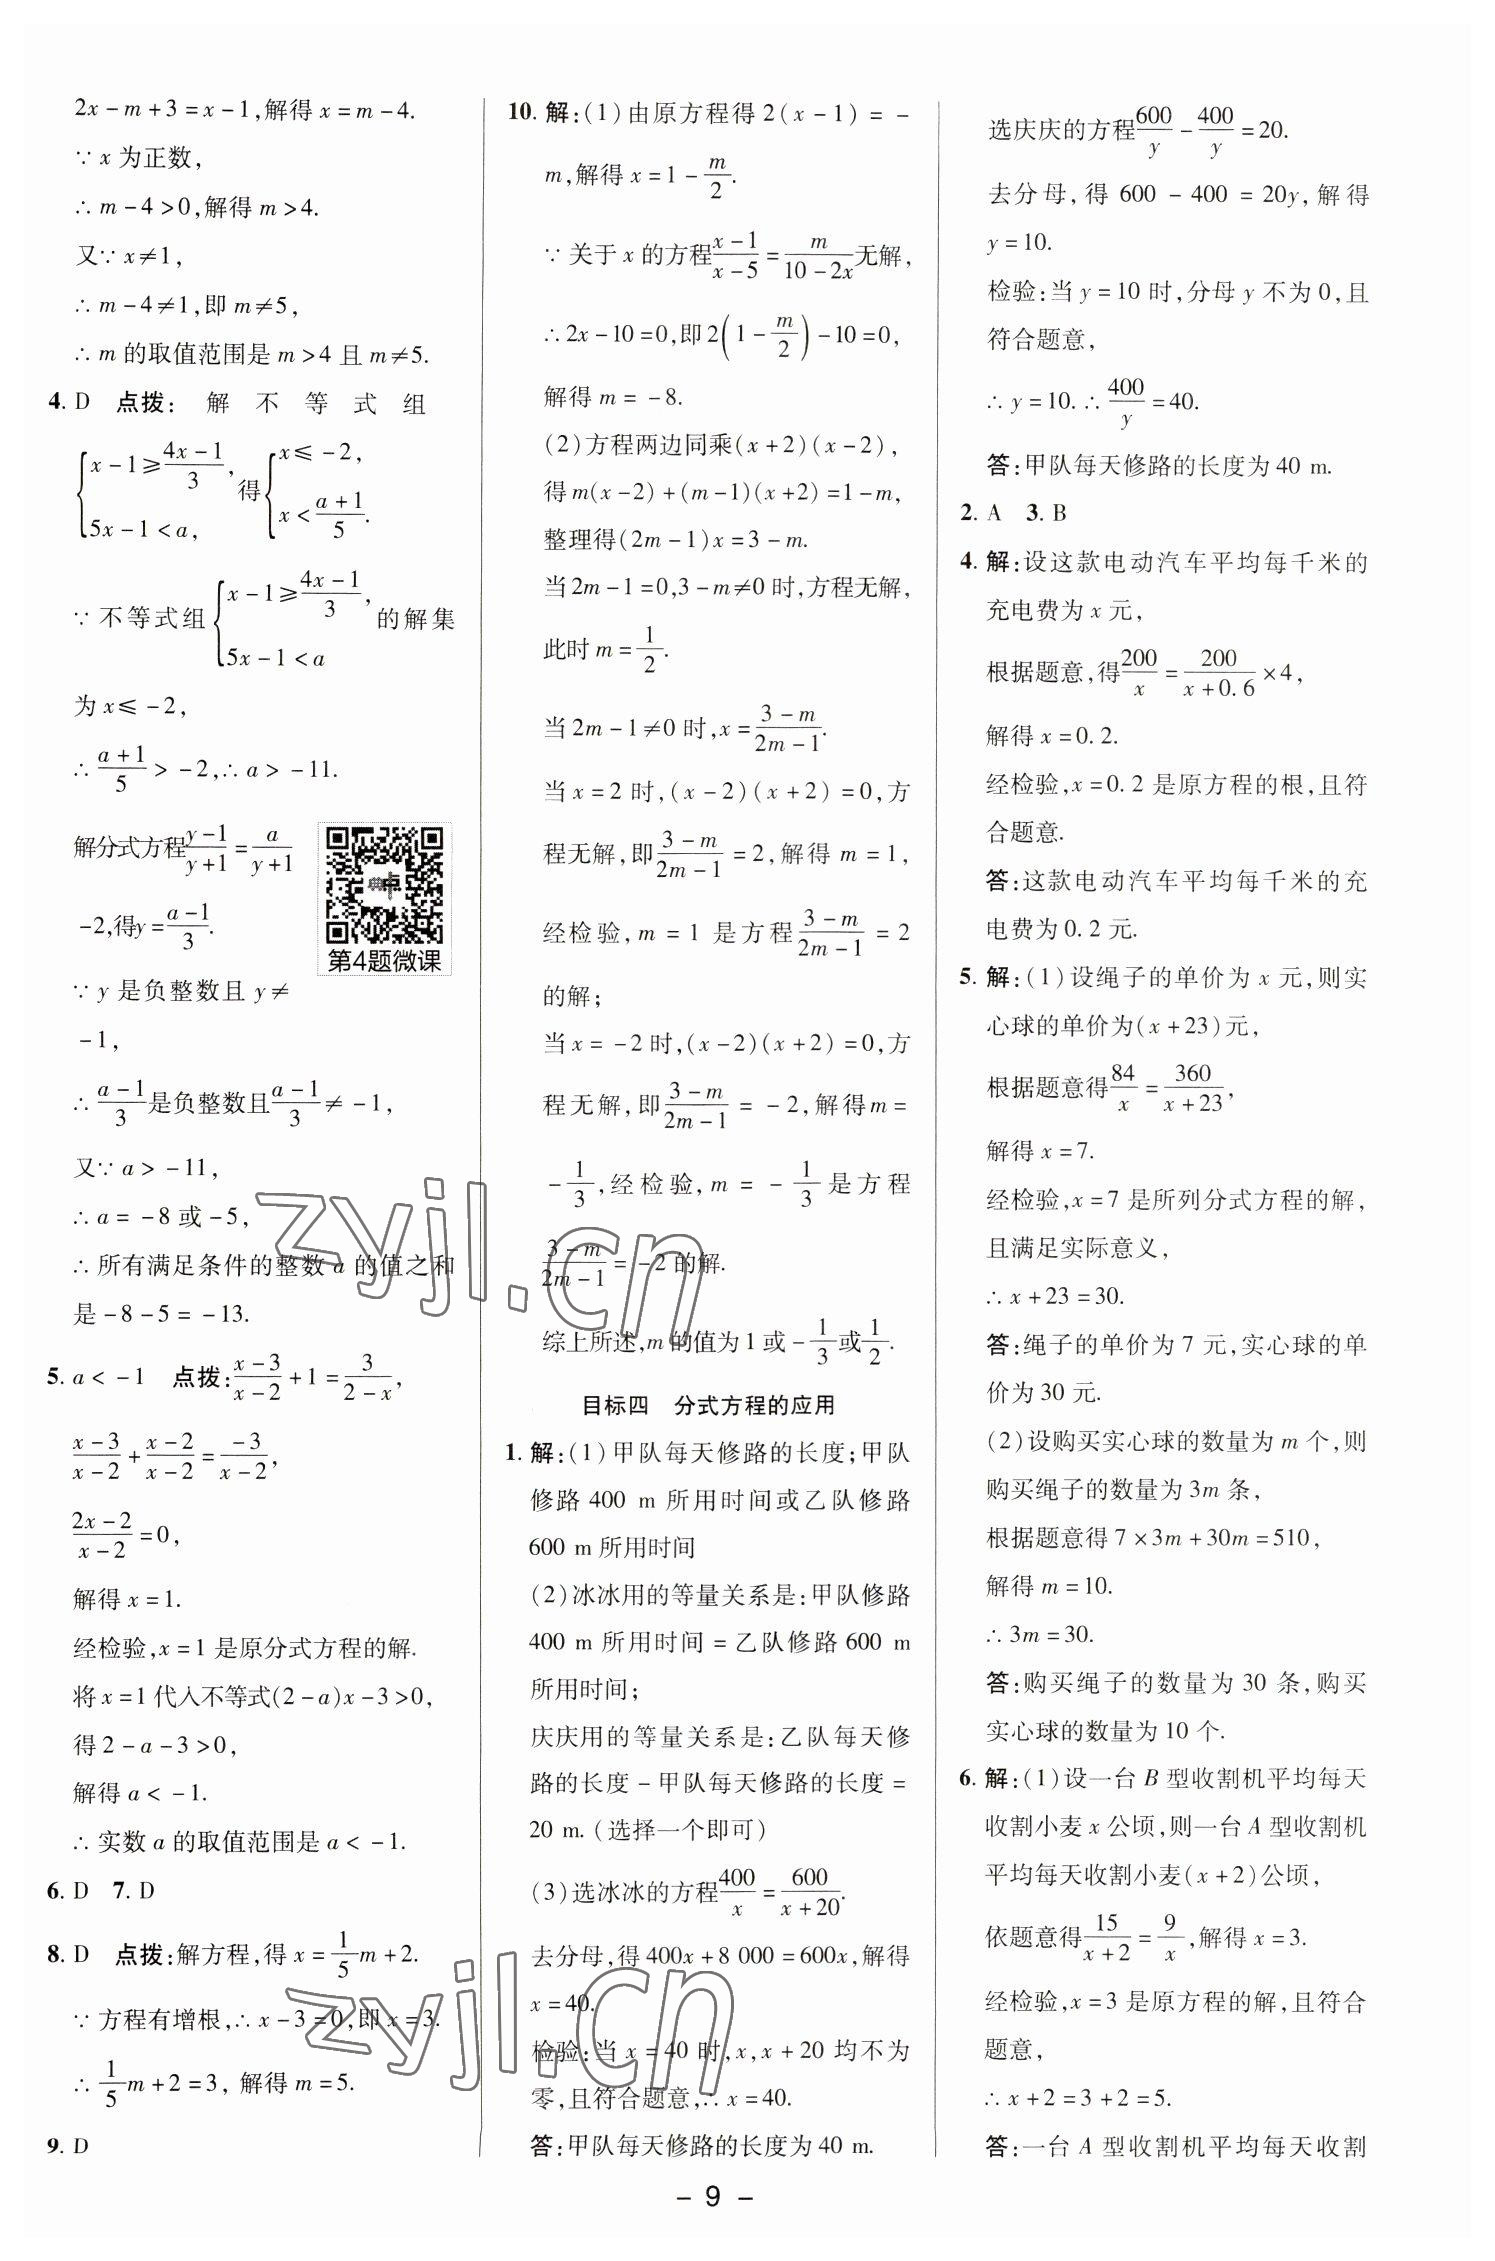 2x-m+3=x-1,解得x=m-4.
∵x为正数,
∴m-4>0,解得m>4.
又∵x≠1,
∴m-4≠1,即m≠5,
∴m的取值范围是m>4且m≠5.
4. D 点拨: 解 不 等 式 组
{x-1≥(4x-1)/3, 5x-1<a, 得{x≤-2, x<(a+1)/5.
∵不等式组{x-1≥(4x-1)/3, 5x-1<a 的解集
为x≤-2,
∴(a+1)/5>-2,∴a>-11.
解分式方程(y-1)/(y+1)=a/(y+1)
-2,得y=(a-1)/3.
第4题微课
∵y是负整数且y≠
-1,
∴(a-1)/3是负整数且(a-1)/3≠-1,
又∵a>-11,
∴a=-8或-5,
∴所有满足条件的整数a的值之和
是-8-5=-13.
5. a<-1 点拨:(x-3)/(x-2)+1=3/(2-x),
(x-3)/(x-2)+(x-2)/(x-2)=-3/(x-2),
(2x-2)/(x-2)=0,
解得x=1.
经检验,x=1是原分式方程的解.
将x=1代入不等式(2-a)x-3>0,
得2-a-3>0,
解得a<-1.
∴实数a的取值范围是a<-1.
6. D 7. D
8. D 点拨:解方程,得x=1/5m+2.
∵方程有增根,∴x-3=0,即x=3.
∴1/5m+2=3,解得m=5.
9. D
10. 解:(1)由原方程得2(x-1)=-
m,解得x=1-m/2.
∵关于x的方程(x-1)/(x-5)=m/(10-2x)无解,
∴2x-10=0,即2(1-m/2)-10=0,
解得m=-8.
(2)方程两边同乘(x+2)(x-2),
得m(x-2)+(m-1)(x+2)=1-m,
整理得(2m-1)x=3-m.
当2m-1=0,3-m≠0时,方程无解,
此时m=1/2.
当2m-1≠0时,x=(3-m)/(2m-1).
当x=2时,(x-2)(x+2)=0,方
程无解,即(3-m)/(2m-1)=2,解得m=1,
经检验,m=1是方程(3-m)/(2m-1)=2
的解;
当x=-2时,(x-2)(x+2)=0,方
程无解,即(3-m)/(2m-1)=-2,解得m=
-1/3,经检验,m=-1/3是方程
(3-m)/(2m-1)=-2的解.
综上所述,m的值为1或-1/3或1/2.
目标四 分式方程的应用
1. 解:(1)甲队每天修路的长度;甲队
修路400 m所用时间或乙队修路
600 m所用时间
(2)冰冰用的等量关系是:甲队修路
400 m所用时间=乙队修路600 m
所用时间;
庆庆用的等量关系是:乙队每天修
路的长度-甲队每天修路的长度=
20 m.(选择一个即可)
(3)选冰冰的方程400/x=600/(x+20).
去分母,得400x+8 000=600x,解得
x=40.
检验:当x=40时,x,x+20均不为
零,且符合题意,∴x=40.
答:甲队每天修路的长度为40 m.
选庆庆的方程600/y-400/y=20.
去分母,得600-400=20y,解得
y=10.
检验:当y=10时,分母y不为0,且
符合题意,
∴y=10.∴400/y=40.
答:甲队每天修路的长度为40 m.
2. A 3. B
4. 解:设这款电动汽车平均每千米的
充电费为x元,
根据题意,得200/x=200/(x+0.6)×4,
解得x=0.2.
经检验,x=0.2是原方程的根,且符
合题意.
答:这款电动汽车平均每千米的充
电费为0.2元.
5. 解:(1)设绳子的单价为x元,则实
心球的单价为(x+23)元,
根据题意得84/x=360/(x+23),
解得x=7.
经检验,x=7是所列分式方程的解,
且满足实际意义,
∴x+23=30.
答:绳子的单价为7元,实心球的单
价为30元.
(2)设购买实心球的数量为m个,则
购买绳子的数量为3m条,
根据题意得7×3m+30m=510,
解得m=10.
∴3m=30.
答:购买绳子的数量为30条,购买
实心球的数量为10个.
6. 解:(1)设一台B型收割机平均每天
收割小麦x公顷,则一台A型收割机
平均每天收割小麦(x+2)公顷,
依题意得15/(x+2)=9/x,解得x=3.
经检验,x=3是原方程的解,且符合
题意,
∴x+2=3+2=5.
答:一台A型收割机平均每天收割
zyjl.cn
zyjl.cn
- 9 -